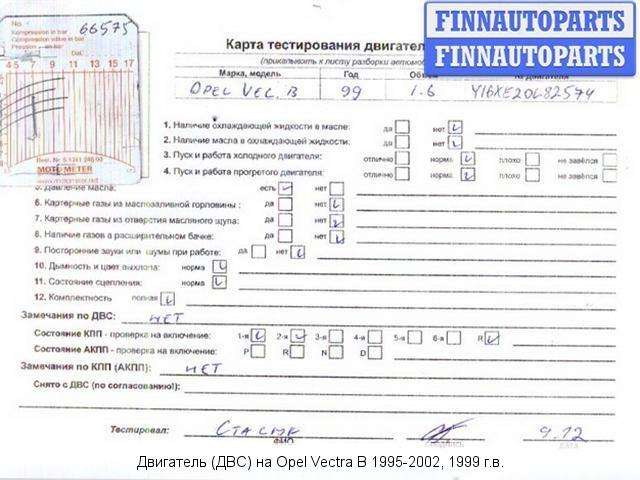 No 66575
Kompression in bar
Compression value in bar
Pression en bar
Dat.
4 5 7 9 11 13 15 17
MOTOMETER
FINNAUTOPARTS
FINNAUTOPARTS
Карта тестирования двигател
(прикалывать к листу разборки автомо
Марка, модель Год Объем № двигателя
OPEL VEC. B 99 1.6 Y16XE20L82574
1. Наличие охлаждающей жидкости в масле: да нет
2. Наличие масла в охлаждающей жидкости: да нет
3. Пуск и работа холодного двигателя: отлично норма плохо не завёлся
4. Пуск и работа прогретого двигателя: отлично норма плохо не завёлся
5. Давление масла: есть нет
6. Картерные газы из маслозаливной горловины : да нет
7. Картерные газы из отверстия масляного щупа: да нет
8. Наличие газов в расширительном бачке: да нет
9. Посторонние звуки или шумы при работе: да нет
10. Дымность и цвет выхлопа: норма
11. Состояние сцепления: норма
12. Комплектность полная
Замечания по ДВС: НЕТ
Состояние КПП - проверка на включение: 1-я 2-я 3-я 4-я 5-я 6-я R
Состояние АКПП - проверка на включение: P R N D
Замечания по КПП (АКПП): НЕТ
Снято с ДВС (по согласованию!):
Тестировал: 9.12
ФИО подпись дата
Двигатель (ДВС) на Opel Vectra B 1995-2002, 1999 г.в.